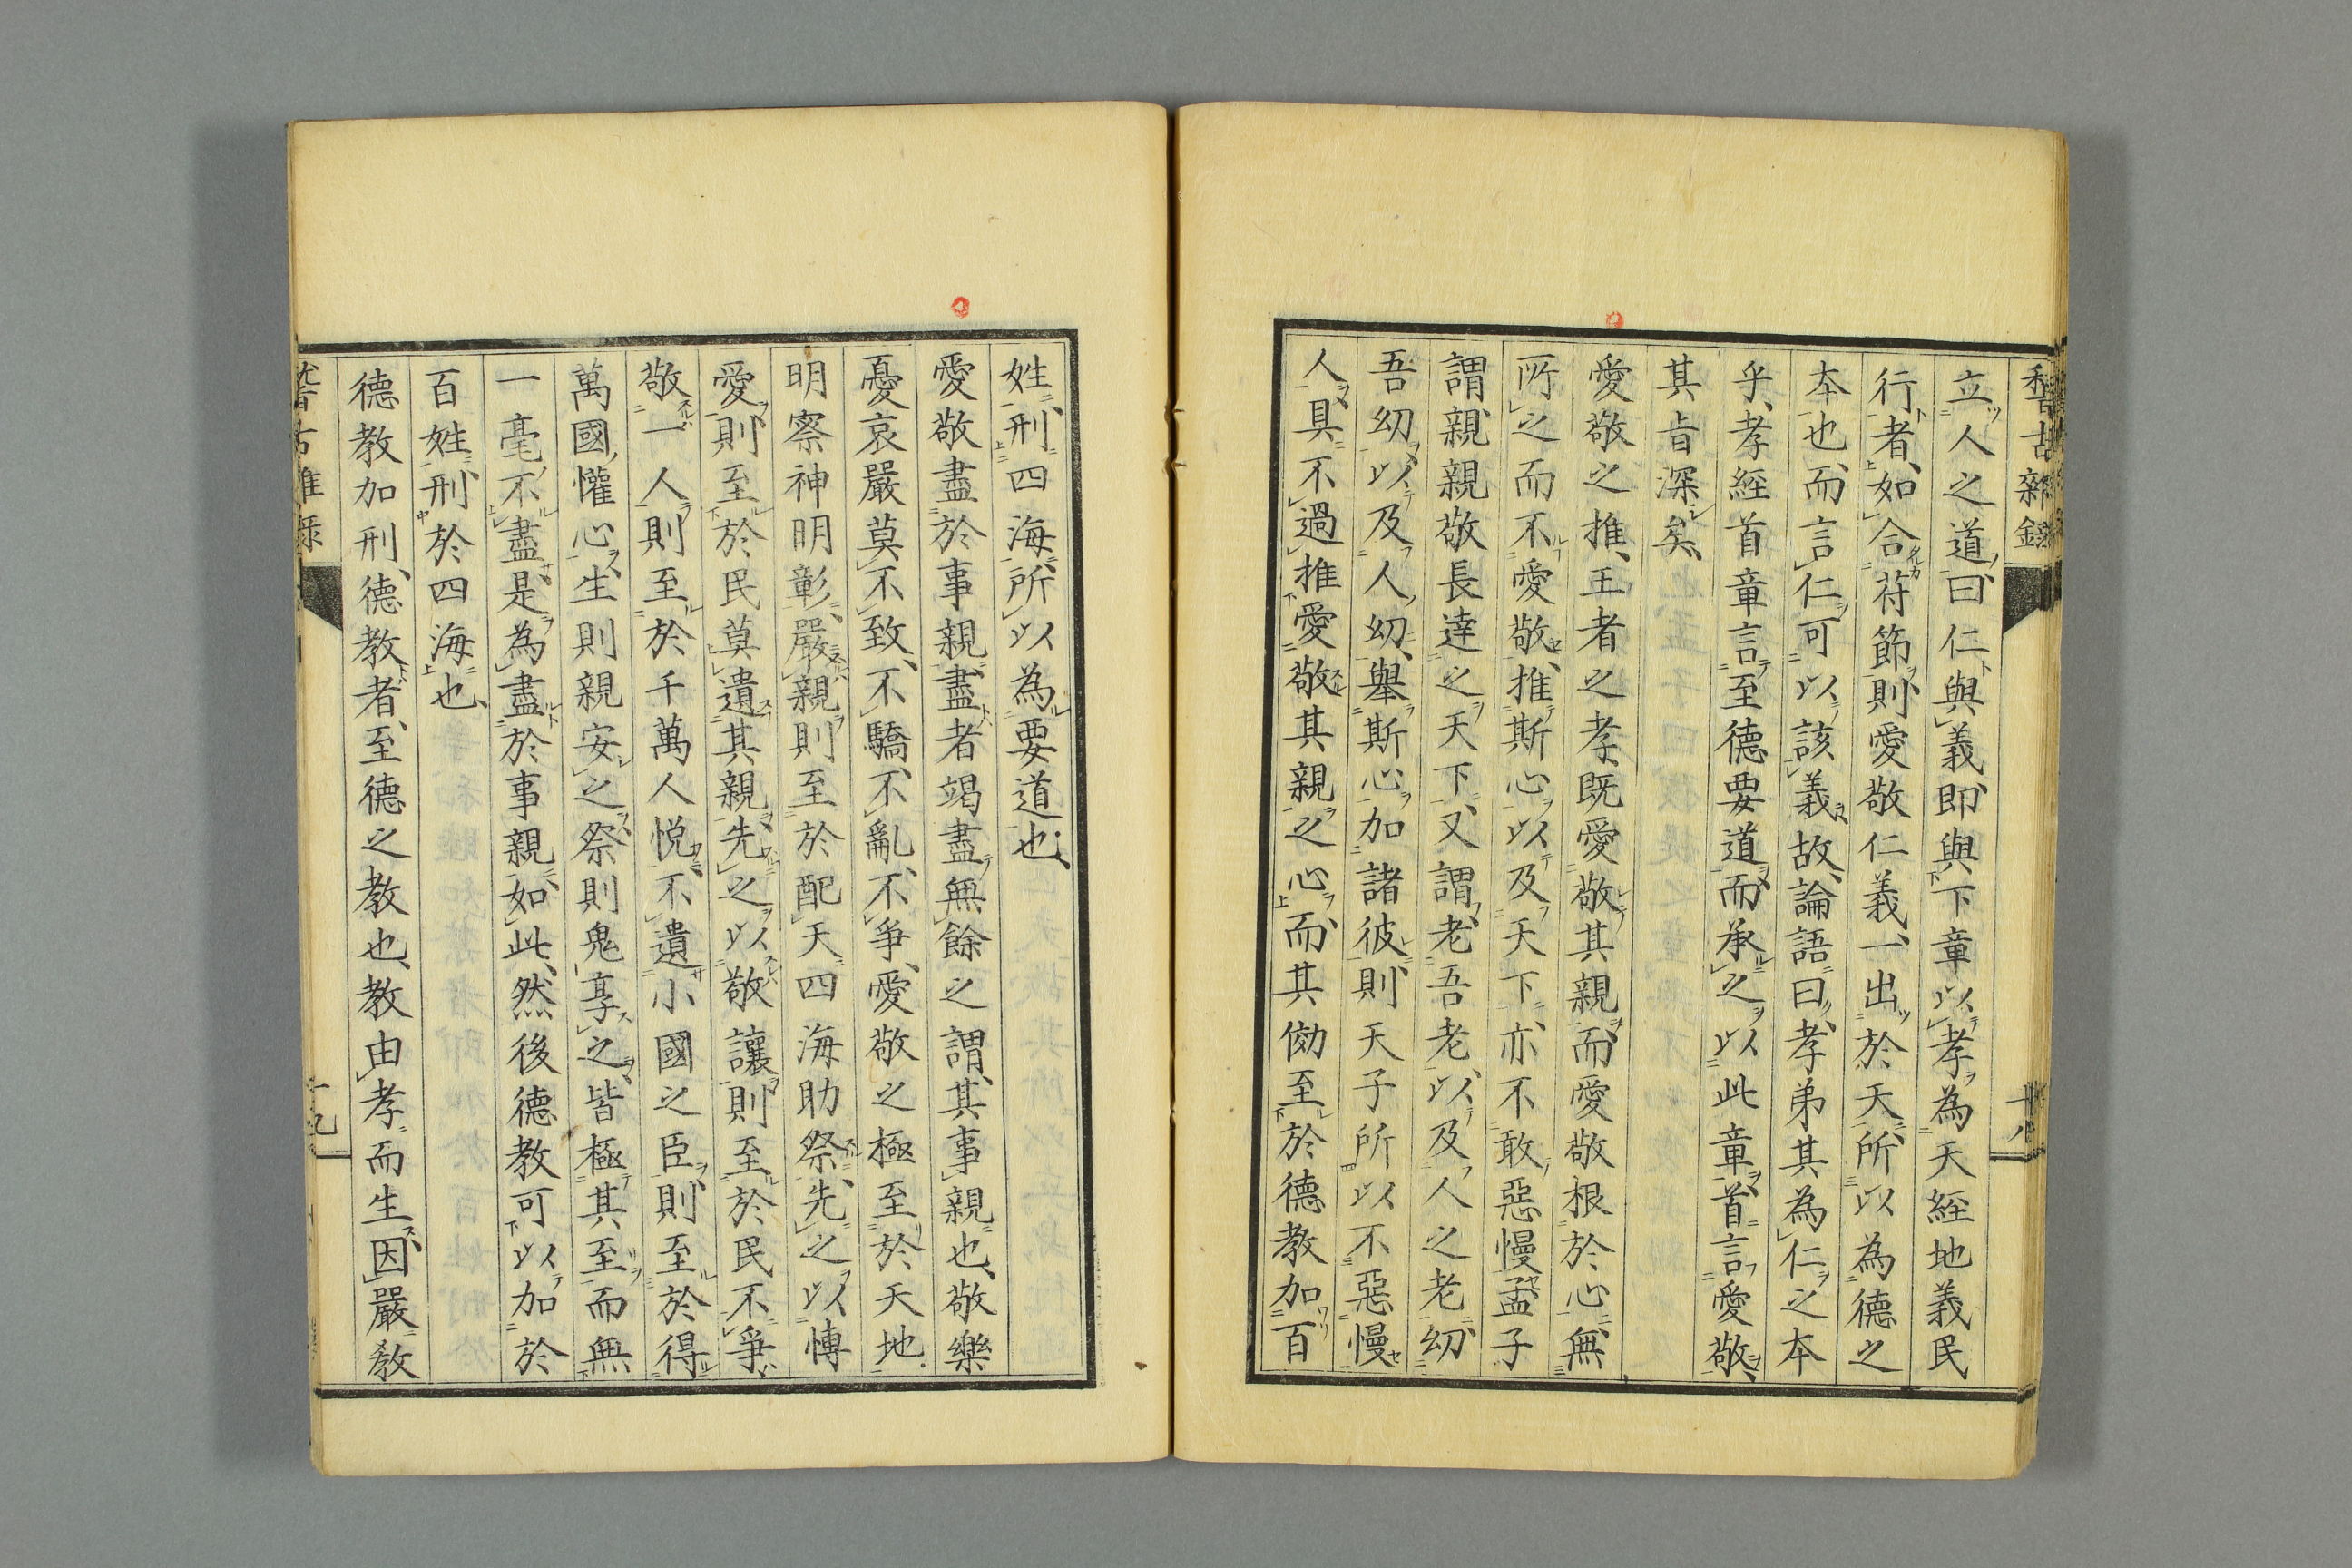 稽古雜錄
十八
立人之道、曰仁與義、即與下章以孝為天經地義民
行者、如合符節、則愛敬仁義、一出於天、所以為德之
本也、而言仁可以該義、故論語曰、孝弟其為仁之本
乎、孝經首章言至德要道、而承之以此章、首言愛敬、
其旨深矣、
愛敬之推、王者之孝、既愛敬其親、而愛敬根於心、無
所之而不愛敬、推斯心以及天下、亦不敢惡慢、孟子
謂親親敬長達之天下、又謂、老吾老、以及人之老、幼
吾幼、以及人幼、舉斯心加諸彼、則天子所以不惡慢
人、具不過推愛敬其親之心、而其効至於德教加百
姓、刑四海、所以為要道也、
愛敬盡於事親、盡者竭盡無餘之謂、其事親也、敬樂
憂哀嚴莫不致、不驕、不亂、不爭、愛敬之極至於天地
明察神明彰、嚴親則至於配天四海助祭、先之以博
愛、則至於民莫遺其親、先之以敬讓、則至於民不爭、
敬一人則至於千萬人悅、不遺小國之臣、則至於得
萬國懽心、生則親安之、祭則鬼享之、皆極其至而無
一毫不盡、是為盡於事親、如此、然後德教可以加於
百姓、刑於四海也、
德教加刑、德教者、至德之教也、教由孝而生、因嚴教
稽古雜錄
十九